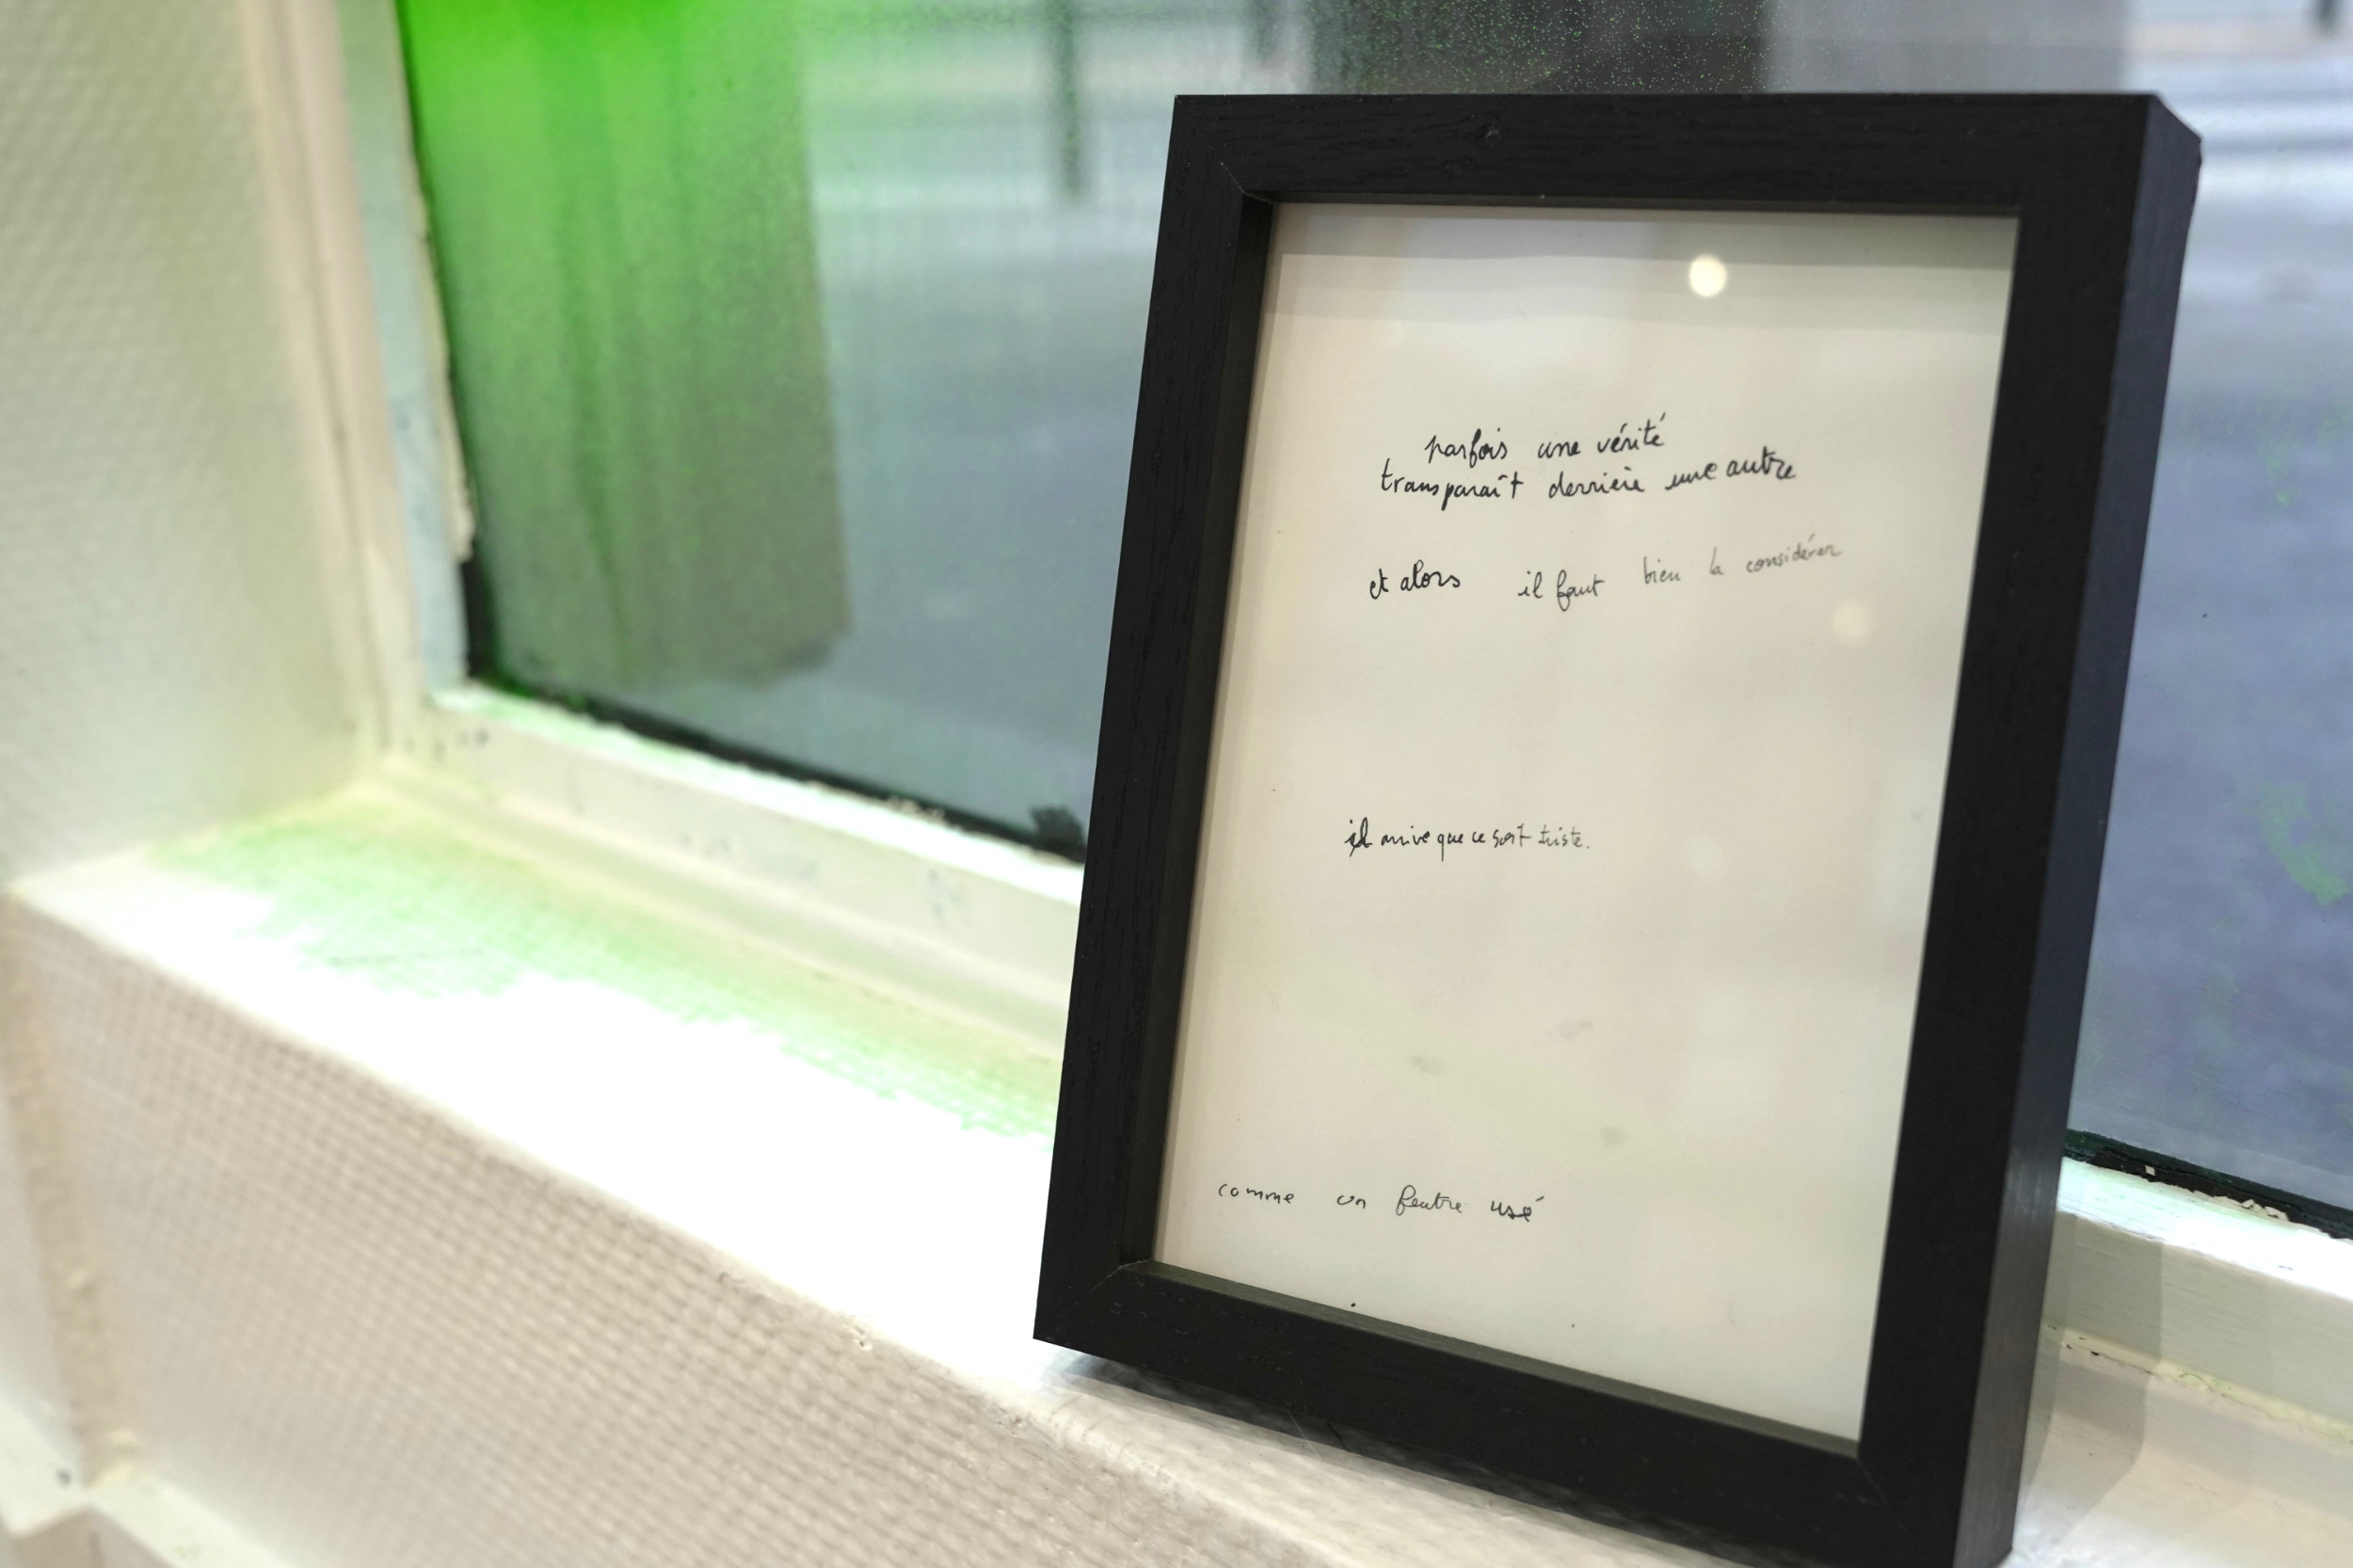 parfois une vérité
transparaît derrière une autre
et alors il faut bien la considérer
il arrive que ce soit triste.
comme un feutre usé